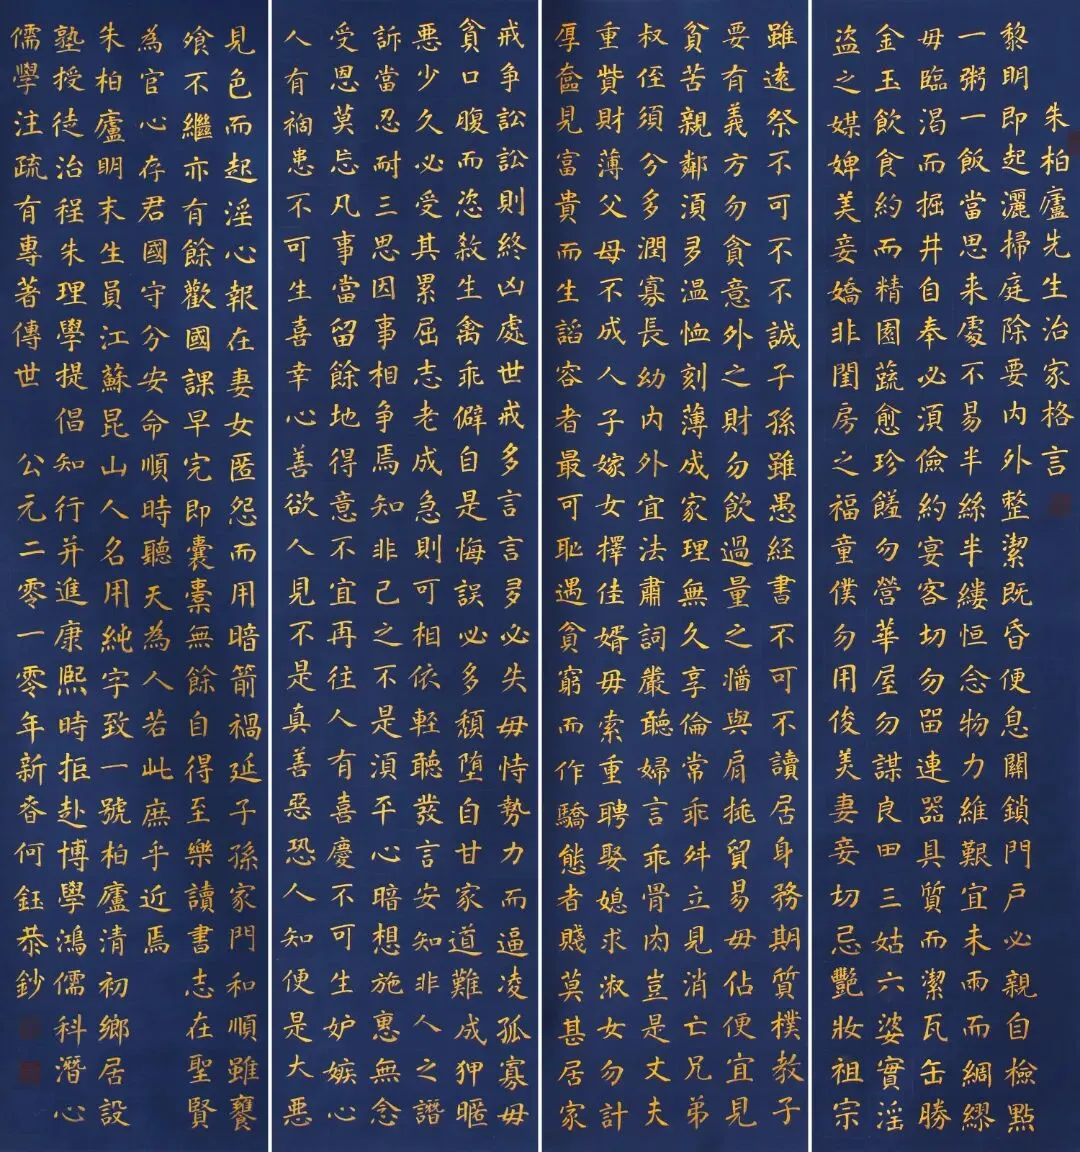 朱柏廬先生治家格言
黎明即起灑掃庭除要內外整潔既昏便息關鎖門戶必親自檢點
一粥一飯當思来處不易半絲半縷恒念物力維艱宜未雨而綢繆
毋臨渴而掘井自奉必須儉約宴客切勿留連器具質而潔瓦缶勝
金玉飲食約而精園蔬愈珍饈勿營華屋勿謀良田三姑六婆實淫
盜之媒婢美妾嬌非閨房之福童僕勿用俊美妻妾切忌艷妝祖宗
雖遠祭不可不不誠子孫雖愚經書不可不讀居身務期質樸教子
要有義方勿貪意外之財勿飲過量之酒與肩挑貿易毋佔便宜見
貧苦親鄰須多溫恤刻薄成家理無久享倫常乖舛立見消亡兄弟
叔侄須分多潤寡長幼內外宜法肅詞嚴聽婦言乖骨肉豈是丈夫
重貲財薄父母不成人子嫁女擇佳婿毋索重聘娶媳求淑女勿計
厚奩見富貴而生諂容者最可恥遇貧窮而作驕態者賤莫甚居家
戒争訟訟則終凶處世戒多言言多必失毋恃勢力而逼凌孤寡毋
貪口腹而恣殺生禽乖僻自是悔誤必多頹堕自甘家道難成狎暱
惡少久必受其累屈志老成急則可相依輕聽發言安知非人之譖
訴當忍耐三思因事相争焉知非己之不是須平心暗想施惠無念
受恩莫忘凡事當留餘地得意不宜再往人有喜慶不可生妒嫉心
人有禍患不可生喜幸心善欲人見不是真善惡恐人知便是大惡
見色而起淫心報在妻女匿怨而用暗箭禍延子孫家門和順雖饔
飧不繼亦有餘歡國課早完即囊橐無餘自得至樂讀書志在聖賢
為官心存君國守分安命順時聽天為人若此庶乎近焉
朱柏廬明末生員江蘇昆山人名用純字致一號柏廬清初鄉居設
塾授徒治程朱理學提倡知行并進康熙時拒赴博學鴻儒科潛心
儒學注疏有專著傳世 公元二零一零年新春何鈺恭鈔